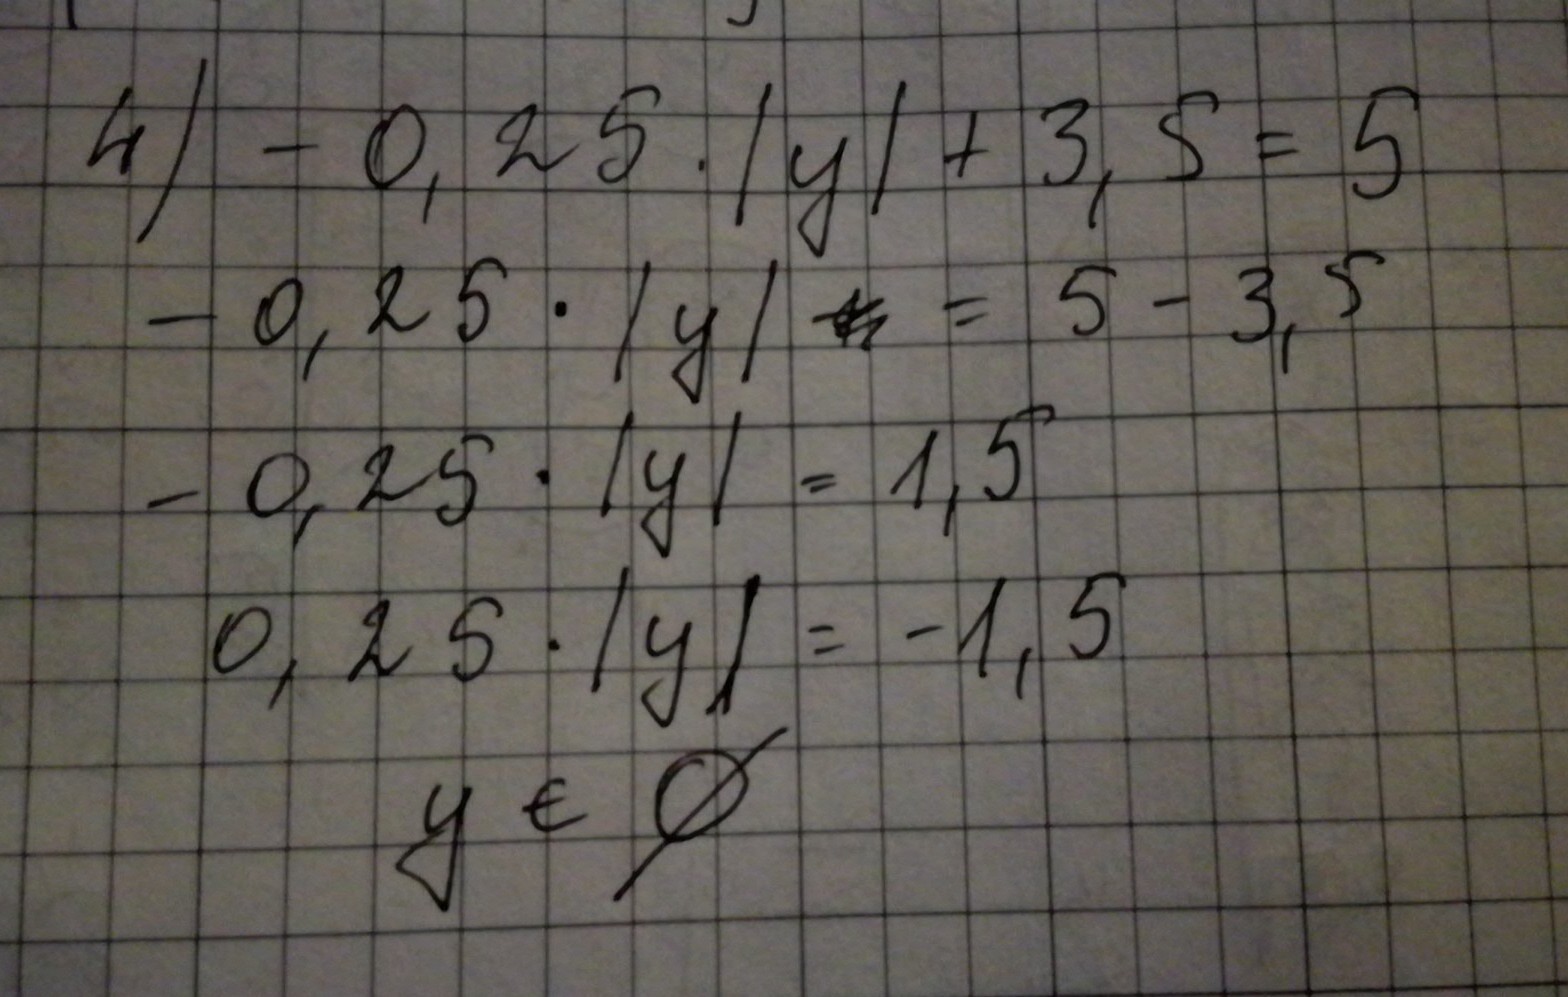 4) - 0,25 · |y| + 3,5 = 5
- 0,25 · |y| = 5 - 3,5
- 0,25 · |y| = 1,5
0,25 · |y| = -1,5
y ∈ ∅